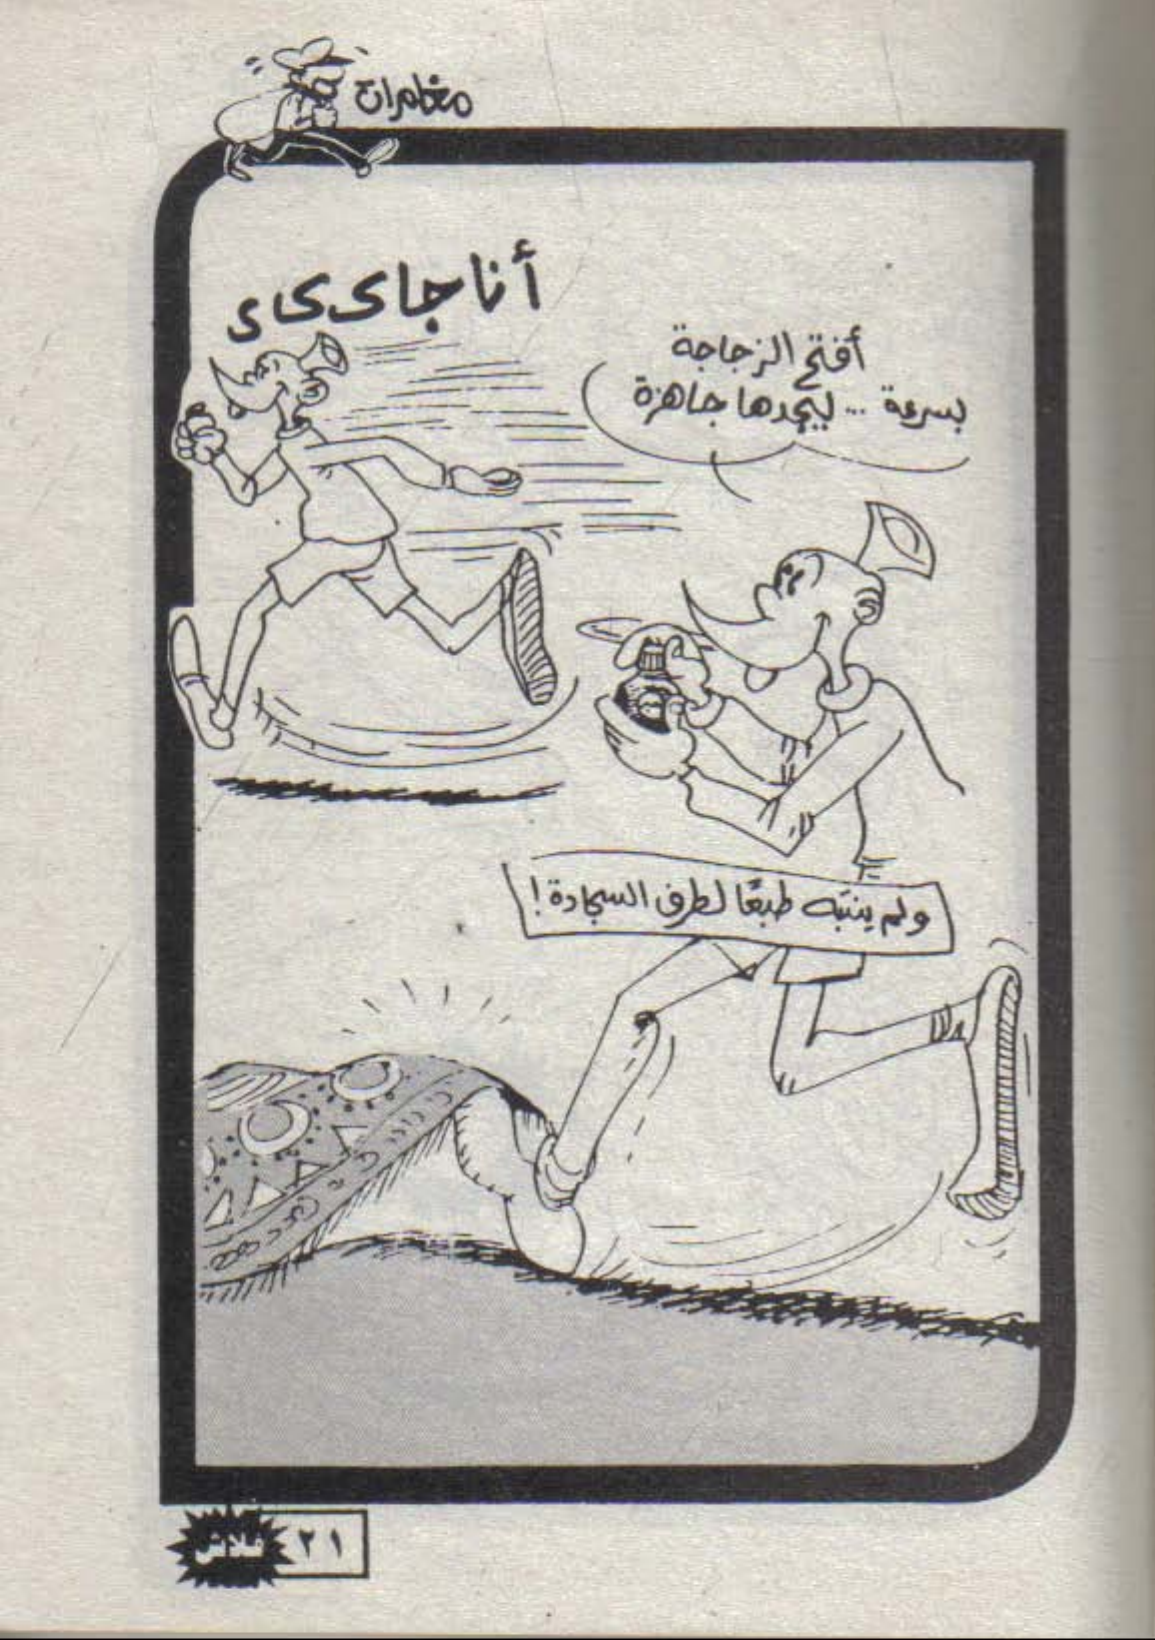 مغامرات
أنا جاى ى ى اى
أفتح الزجاجة
بسرعة ... ليجدها جاهزة
ولم ينتبه طبعًا لطرف السجادة !
فلاش
٢١